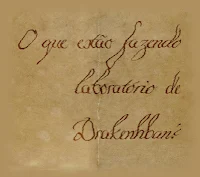 O que estão fazendo
laboratório de
Drakenhbane